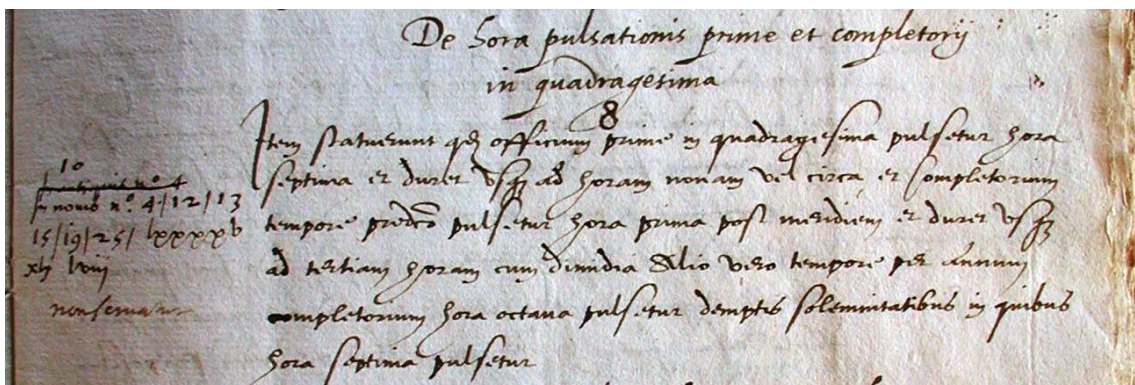 De hora pulsationis prime et completorij
in quadragesima
8
Item statuerunt qd officium prime in quadragesima pulsetur hora
septima et duret usq ad horam nonam vel circa et completorium
tempore predco pulsetur hora prima post meridiem et duret usq
ad tertiam horam cum dimidia Alio vero tempore per Annum
completorium hora octava pulsetur demptis solemnitatibus in quibus
hora septima pulsetur
10
nº 4
In novis nº. 4/12/13
15/19/25/ lxxxxv
lviij
non servatur